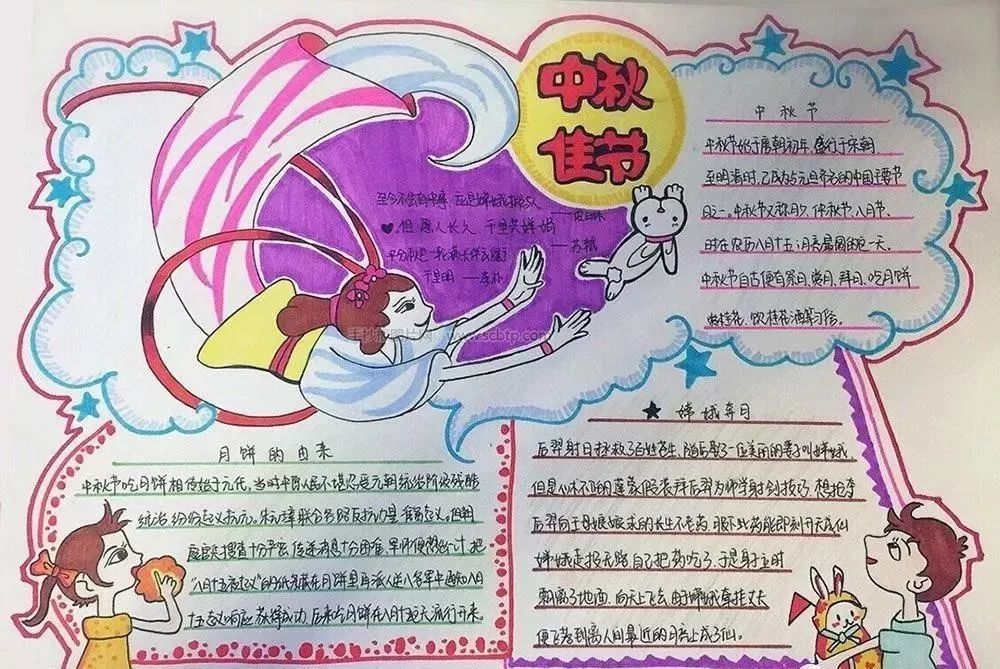 中秋
佳节
中秋节
中秋节始于唐朝初年,盛行于宋朝,
至明清时,已成为与元旦齐名的中国主要节
日之一。中秋节又称月夕、仲秋节、八月节。
时在农历八月十五;月亮最圆的这一天。
中秋节自古便有祭月、赏月、拜月、吃月饼
赏桂花、饮桂花酒等习俗。
至今不会
♥,但愿人长久,千里共婵娟
——苏轼
平分秋色一轮满长伴云衢
千里明——李朴
手抄报图片网 www.scbtp.com
月饼的由来
中秋节吃月饼相传始于元代,当时中原人民不堪忍受元朝统治阶级残酷
统治,纷纷起义抗元。朱元璋联合各路反抗力量准备起义。但朝
庭官兵搜查十分严密,传递消息十分困难,军师便想出一计,把
"八月十五夜起义"的纸条藏在月饼里再派人送入各军中通知八月
十五起义响应获得成功,后来吃月饼在八月十五大流行开来。
★ 嫦娥奔月
后羿射日拯救了百姓苍生,随后娶了一位美丽的妻子叫嫦娥,
但是心术不正的蓬蒙假装拜后羿为师学射剑技巧,想抢夺
后羿向王母娘娘求的长生不老药,服下此药能即刻升天成仙
嫦娥走投无路,自己把药吃了,于是身立时
飘离了地面,向天上飞去,由于嫦娥牵挂丈夫
便飞落到离人间最近的月亮上成了仙。